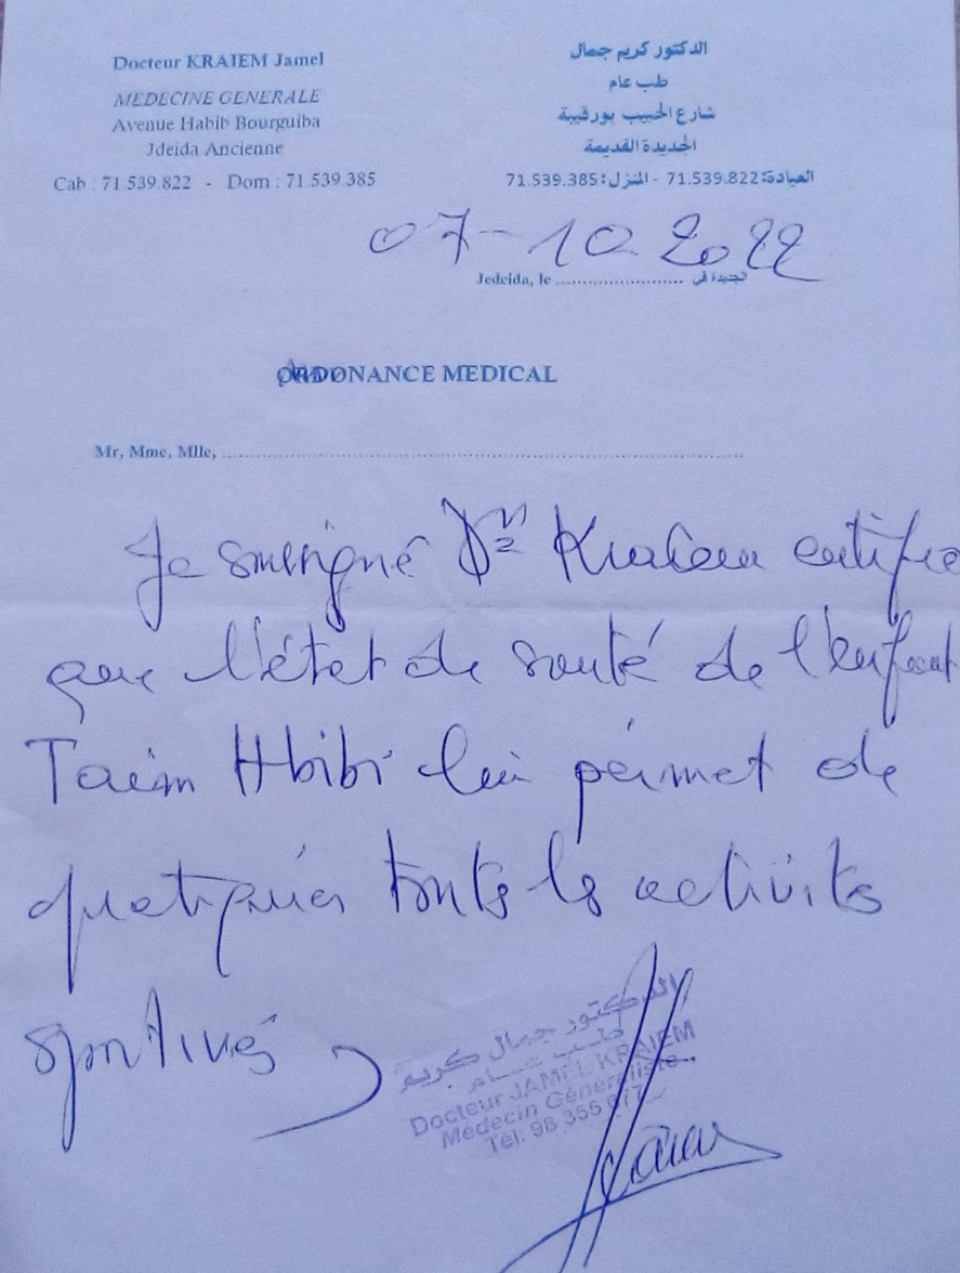 Docteur KRAIEM Jamel
MEDECINE GENERALE
Avenue Habib Bourguiba
Jdeida Ancienne
Cab : 71.539.822 - Dom : 71.539.385
الدكتور كريم جمال
طب عام
شارع الحبيب بورقيبة
الجديدة القديمة
العيادة: 71.539.822 - المنزل: 71.539.385
07-10-2022
Jedeida, le ........................ الجديدة في
ORDONANCE MEDICAL
Mr, Mme, Mlle, ........................
Je soussigné Dr Kraiem certifie
que l'état de santé de l'enfant
Taim Hbibi lui permet de
pratiquer touts les activits
sportives
الدكتور جمال كريم
طب عام
Docteur JAMEL KRAIEM
Médecin Généraliste
Tél: 98 355 677